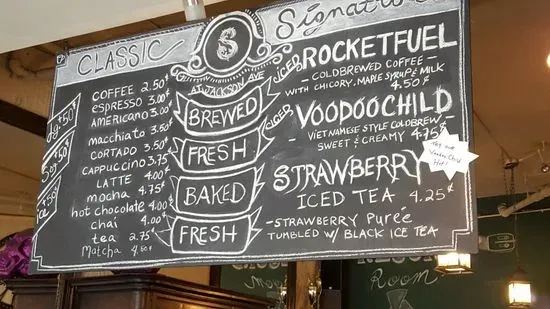 CLASSIC
COFFEE 2.50¢
ESPRESSO 3.00¢
AMERICANO 3.00¢
macchiato 3.50¢
CORTADO 3.50¢
CAPPUCCINO 3.75
LATTE 4.00¢
mocha 4.75¢
hot chocolate 4.00¢
chai 4.00¢
tea 2.75¢
Matcha 4.50¢
S
AT JACKSON AVE
BREWED
FRESH
BAKED
FRESH
Signature
ICED ROCKETFUEL
- COLDBREWED COFFEE
WITH CHICORY, MAPLE SYRUP & MILK
4.50¢
ICED VOODOOCHILD
VIETNAMESE STYLE COLDBREW
SWEET & CREAMY 4.75¢
Try our
Voodoo Child
Hot!
STRAWBERRY
ICED TEA 4.25¢
- STRAWBERRY PUREÉ
TUMBLED W/ BLACK ICE TEA
Room